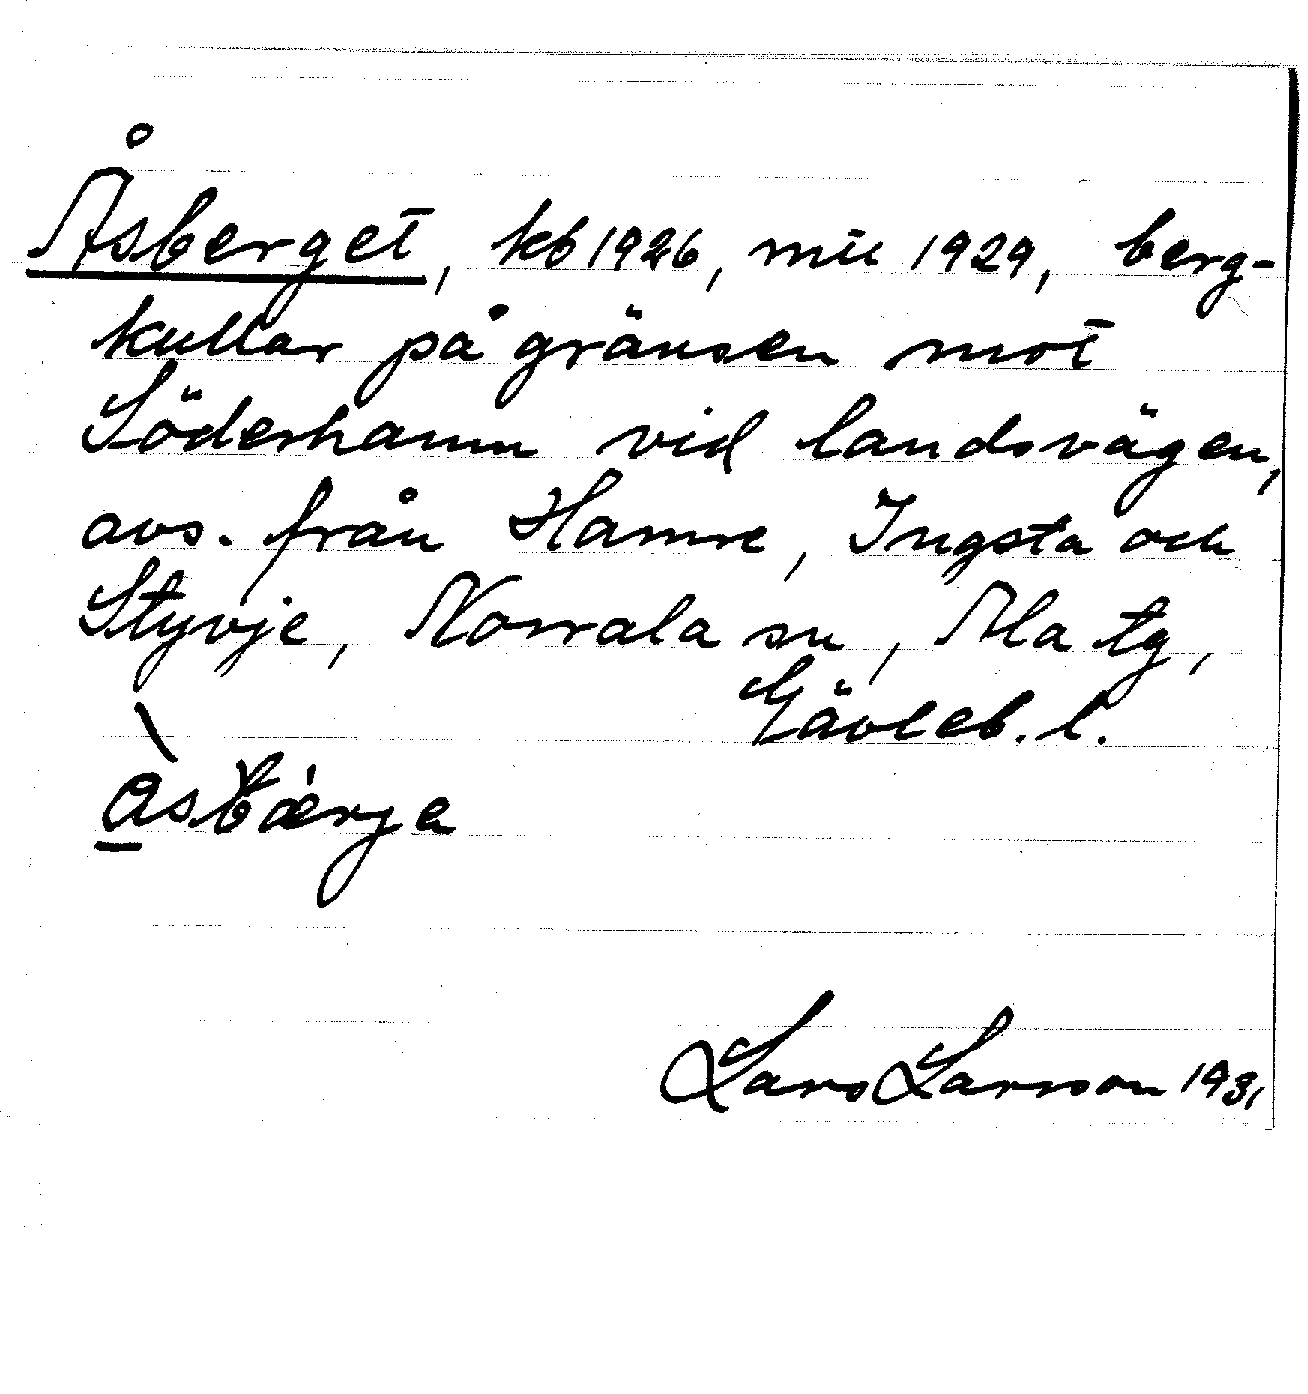 Åsberget, kb 1926, mu 1929, berg-
kullar på gränsen mot
Söderhamn vid landsvägen,
avs. från Hamre, Ingsta och
Styvje, Norrala sn, Ala tg,
Gävleb. l.
åsbærje
Lars Larsson 1931